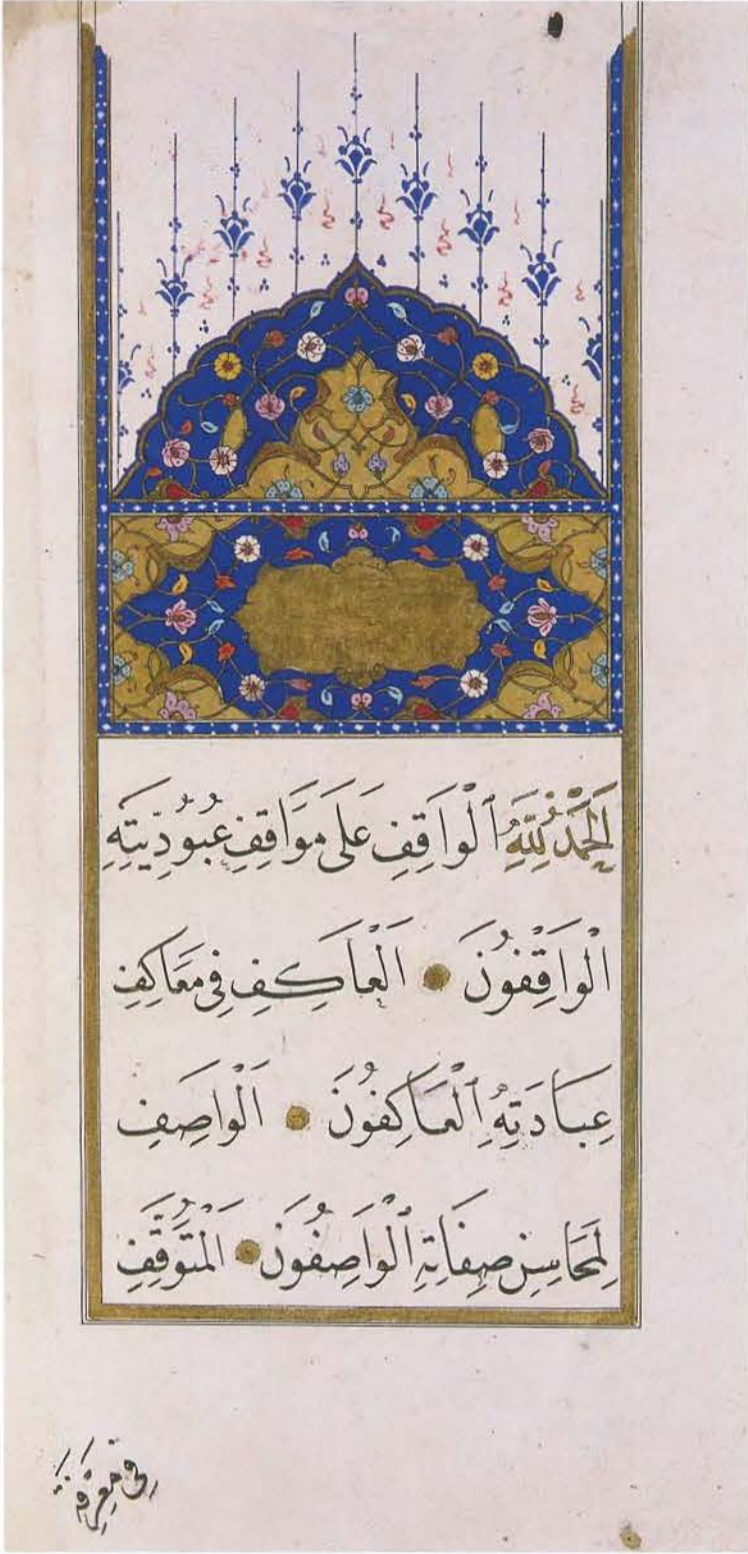 اَلْحَمْدُ لِلّٰهِ ٱلْوَاقِفِ عَلَى مَوَاقِفِ عُبُودِيَّتِهِ
الْوَاقِفُونَ ۝ اَلْعَاكِفِ فِي مَعَاكِفِ
عِبَادَتِهِ ٱلْعَاكِفُونَ ۝ اَلْوَاصِفِ
لِمَحَاسِنِ صِفَاتِهِ ٱلْوَاصِفُونَ ۝ اَلْمُتَوَقِّفِ
فِي مَعْرِفَة